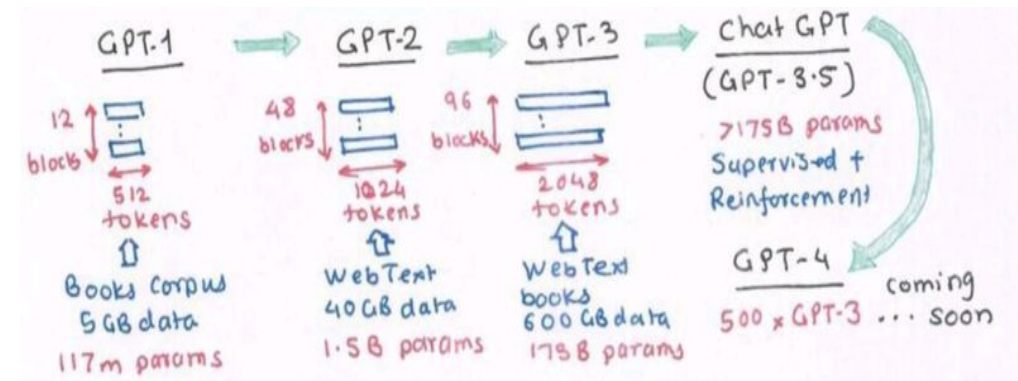 GPT-1
12
blocks
512
tokens
Books Corpus
5GB data
117m params
GPT-2
48
blocks
1024
tokens
WebText
40GB data
1.5B params
GPT-3
96
blocks
2048
tokens
WebText
books
600GB data
175B params
Chat GPT
(GPT-3.5)
>175B params
Supervised +
Reinforcement
GPT-4
500 x GPT-3
coming
... soon